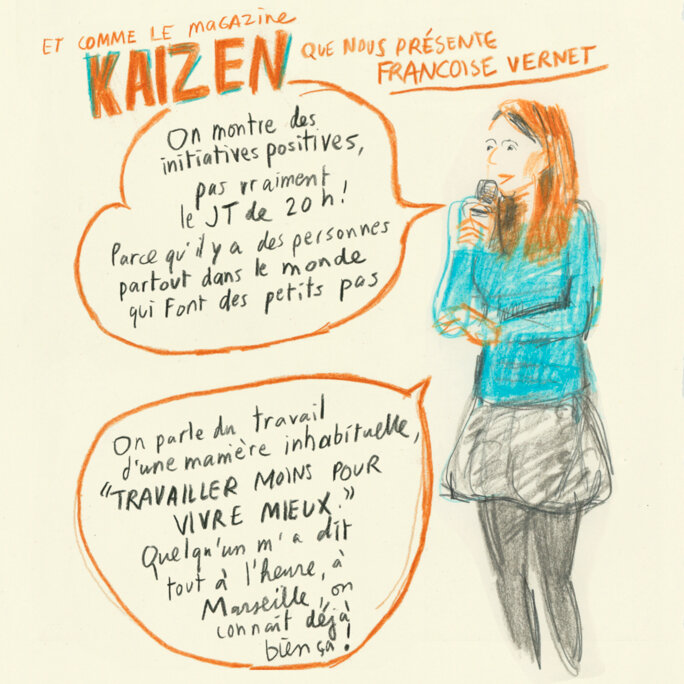 ET COMME LE MAGAZINE
KAIZEN QUE NOUS PRÉSENTE
FRANCOISE VERNET
On montre des
initiatives positives,
pas vraiment
le JT de 20 h!
Parce qu'il y a des personnes
partout dans le monde
qui font des petits pas
On parle du travail
d'une manière inhabituelle,
"TRAVAILLER MOINS POUR
VIVRE MIEUX."
Quelqu'un m'a dit
tout à l'heure, à
Marseille, "on
connait déjà
bien ça!